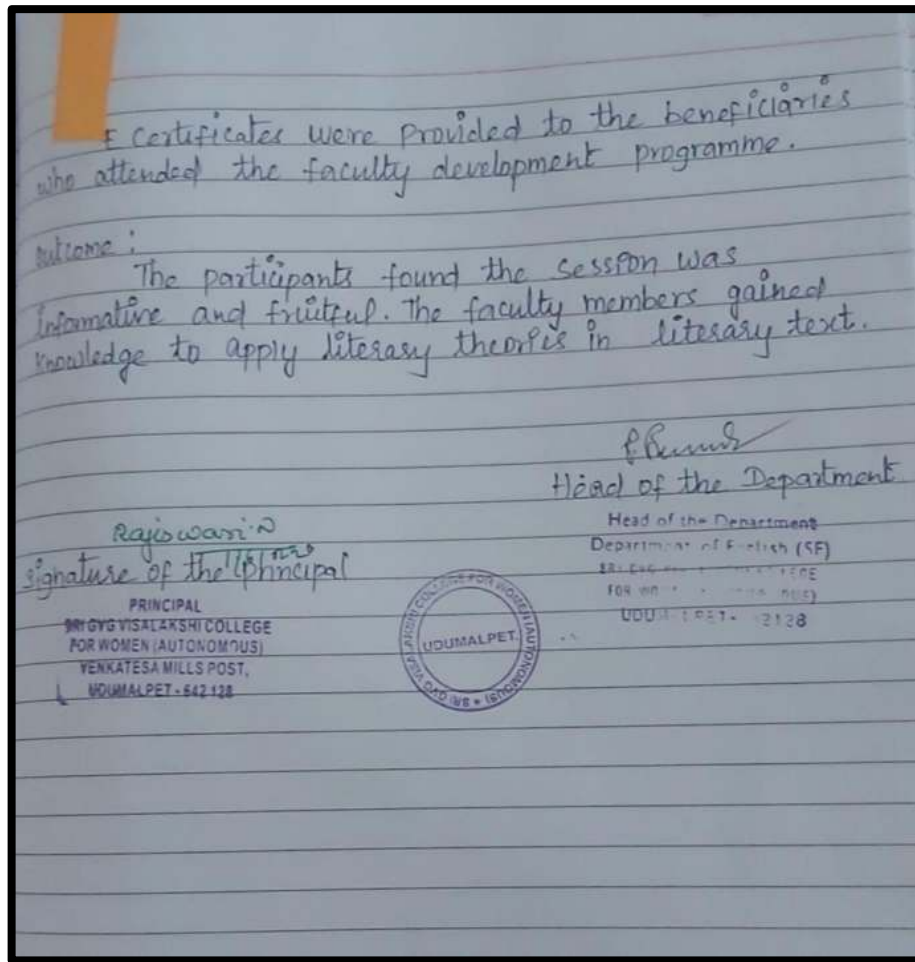 E Certificates were provided to the beneficiaries
who attended the faculty development programme.
outcome :
The participants found the session was
informative and fruitful. The faculty members gained
knowledge to apply literary theories in literary text.
Head of the Department
Rajeswari.N
signature of the Principal
Head of the Department
Department of English (SF)
FOR
UDUMALPET-
PRINCIPAL
SRI GVG VISALAKSHI COLLEGE
FOR WOMEN (AUTONOMOUS)
VENKATESA MILLS POST,
UDUMALPET - 642 128
SRI GVG VISALAKSHI COLLEGE FOR WOMEN (AUTONOMOUS) *
UDUMALPET.